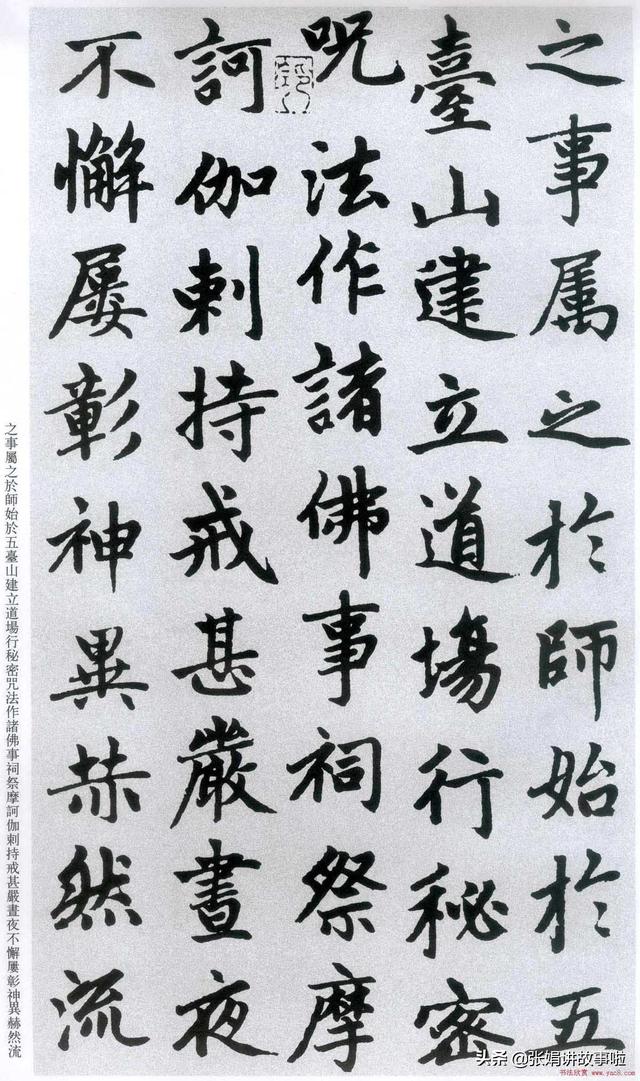 之事属之於師始於五
臺山建立道場行秘密
呪法作諸佛事祠祭摩
訶伽剌持戒甚嚴晝夜
不懈屡彰神異赫然流
之事屬之於師始於五臺山建立道場行秘密咒法作諸佛事祠祭摩訶伽剌持戒甚嚴晝夜不懈屢彰神異赫然流
头条 @张娟讲故事啦
书法欣赏 www.yac8.com